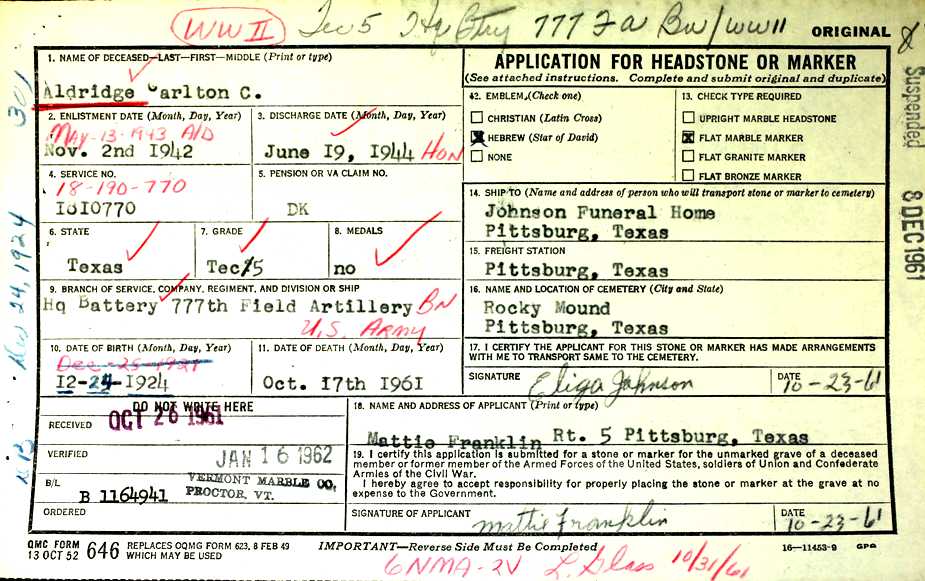 WW II Tec 5 Hq Btry 777 F a Bn / WW II ORIGINAL
1. NAME OF DECEASED—LAST—FIRST—MIDDLE (Print or type)
Aldridge Carlton C.
2. ENLISTMENT DATE (Month, Day, Year)
MAY-13-1943 A/D
Nov. 2nd I942
3. DISCHARGE DATE (Month, Day, Year)
June I9, I944 HON
4. SERVICE NO.
18-190-770
I8I0770
5. PENSION OR VA CLAIM NO.
DK
6. STATE
Texas
7. GRADE
Tec/5
8. MEDALS
no
9. BRANCH OF SERVICE, COMPANY, REGIMENT, AND DIVISION OR SHIP
Hq Battery 777th Field Artillery BN
U.S. ARMY
10. DATE OF BIRTH (Month, Day, Year)
Dec -25-1921
I2-24-I924
11. DATE OF DEATH (Month, Day, Year)
Oct. I7th I96I
DO NOT WRITE HERE
RECEIVED OCT 26 1961
VERIFIED JAN 16 1962
B/L B 1164941
VERMONT MARBLE CO.
PROCTOR, VT.
ORDERED
APPLICATION FOR HEADSTONE OR MARKER
(See attached instructions. Complete and submit original and duplicate)
12. EMBLEM (Check one)
CHRISTIAN (Latin Cross)
HEBREW (Star of David)
NONE
13. CHECK TYPE REQUIRED
UPRIGHT MARBLE HEADSTONE
FLAT MARBLE MARKER
FLAT GRANITE MARKER
FLAT BRONZE MARKER
14. SHIP TO (Name and address of person who will transport stone or marker to cemetery)
Johnson Funeral Home
Pittsburg, Texas
15. FREIGHT STATION
Pittsburg, Texas
16. NAME AND LOCATION OF CEMETERY (City and State)
Rocky Mound
Pittsburg, Texas
17. I CERTIFY THE APPLICANT FOR THIS STONE OR MARKER HAS MADE ARRANGEMENTS
WITH ME TO TRANSPORT SAME TO THE CEMETERY.
SIGNATURE Eliga Johnson DATE 10-23-61
18. NAME AND ADDRESS OF APPLICANT (Print or type)
Mattie Franklin Rt. 5 Pittsburg, Texas
19. I certify this application is submitted for a stone or marker for the unmarked grave of a deceased
member or former member of the Armed Forces of the United States, soldiers of Union and Confederate
Armies of the Civil War.
I hereby agree to accept responsibility for properly placing the stone or marker at the grave at no
expense to the Government.
SIGNATURE OF APPLICANT Mattie Franklin DATE 10-23-61
QMC FORM
13 OCT 52 646 REPLACES OQMG FORM 623, 8 FEB 49
WHICH MAY BE USED
IMPORTANT—Reverse Side Must Be Completed
16—11453-9 GPO
6NMA-2V L. Glass 10/31/61
Suspended 8 DEC 1961
301
24, 1924